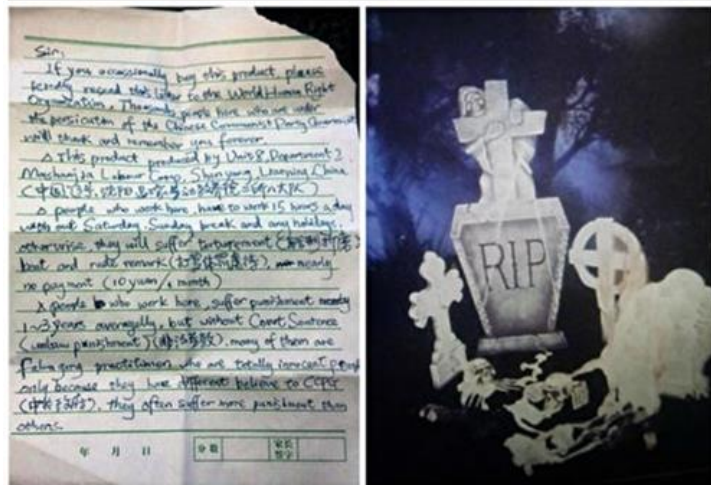 Sir:
If you occassionally buy this product, please
kindly resend this letter to the World Human Right
Organization. Thousands people here who are under
the persicution of the Chinese Communist Party Government
will thank and remember you forever.
This product produced by Unit 8, Department 2,
Masanjia Labour Camp, Shenyang, Liaoning, China
(中国, 辽宁, 沈阳, 马三家劳动教养院二所八大队)
people who work here, have to work 15 hours a day
with out Saturday, Sunday break and any holidays,
otherwise, they will suffer torturement
beat and rude remark nearly
no payment (10 yuan/1 month)
people who work here, suffer punishment nearly
1~3 years averagelly, but without Court Sentence
(unlaw punishment) (非法劳教), many of them are
Falun gong practitioner, who are totally innocent people
only because they have different believe to CCPG
they often suffer more punishment than
others.
年 月 日
分数
家长
签字
RIP